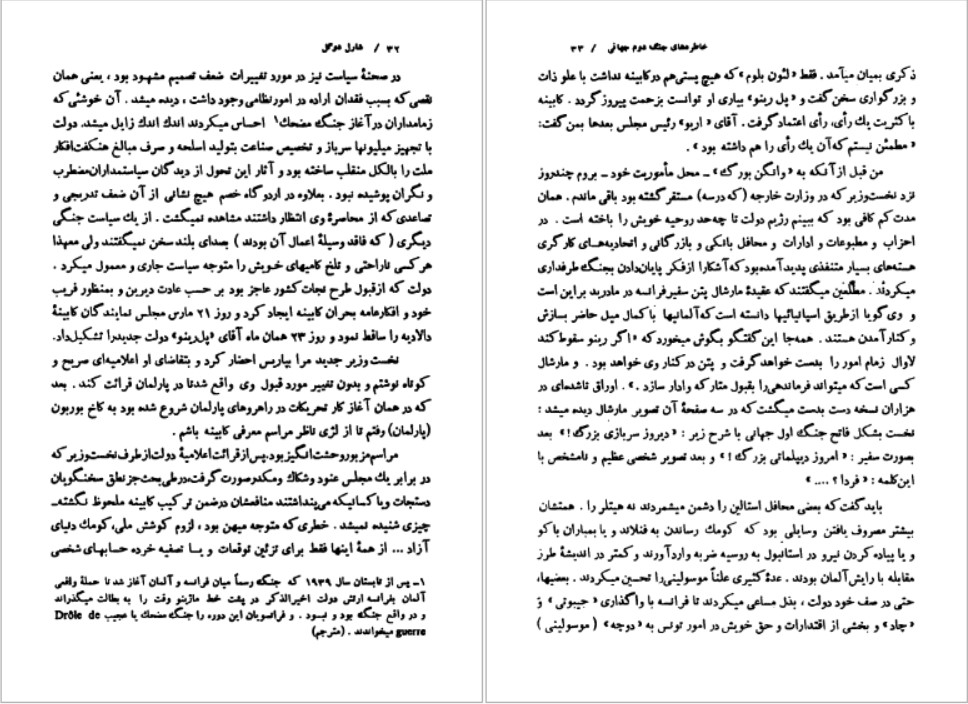 ۳۲ / شارل دوگل
در صحنهٔ سیاست نیز در مورد تغییرات ضعف تصمیم مشهود بود ، یعنی همان
نقصی که بسبب فقدان اراده در امور نظامی وجود داشت ، دیده میشد . آن خوشئی که
زمامداران در آغاز جنگ مضحك۱ احساس میکردند اندك اندك زایل میشد. دولت
با تجهیز میلیونها سرباز و تخصیص صناعت بتولید اسلحه و صرف مبالغ هنگفت افکار
ملت را بالکل منقلب ساخته بود و آثار این تحول از دیدگان سیاستمداران مضطرب
و نگران پوشیده نبود . بعلاوه در اردوگاه خصم هیچ نشانی از آن ضعف تدریجی و
تصاعدی که از محاصرهٔ وی انتظار داشتند مشاهده نمیگشت . از یك سیاست جنگی
دیگری ( که فاقد وسیلهٔ اعمال آن بودند ) بصدای بلند سخن نمیگفتند ولی معهذا
هر کسی ناراحتی و تلخ کامیهای خویش را متوجه سیاست جاری و معمول میکرد .
دولت که از قبول طرح نجات کشور عاجز بود بر حسب عادت دیرین و بمنظور فریب
خود و افکار عامه بحران کابینه ایجاد کرد و روز ۲۱ مارس مجلس نمایندگان کابینهٔ
دالادیه را ساقط نمود و روز ۲۳ همان ماه آقای «پل رینو» دولت جدید را تشکیل داد.
نخست وزیر جدید مرا بپاریس احضار کرد و بتقاضای او اعلامیه‌ای صریح و
کوتاه نوشتم و بدون تغییر مورد قبول وی واقع شد تا در پارلمان قرائت کند . بعد
که در همان آغاز کار تحریکات در راهروهای پارلمان شروع شده بود به کاخ بوربون
(پارلمان) رفتم تا از لژی ناظر مراسم معرفی کابینه باشم .
مراسم مزبور وحشت انگیز بود. پس از قرائت اعلامیهٔ دولت از طرف نخست وزیر که
در برابر یك مجلس عنود وشکاك ومکدر صورت گرفت، در طی بحث جز نطق سخنگویان
دستجات ویا کسانیکه می‌پنداشتند منافعشان در ضمن ترکیب کابینه ملحوظ نگشته‌ـ
چیزی شنیده نمیشد . خطری که متوجه میهن بود ، لزوم کوشش ملی، کومك دنیای
آزاد ... از همهٔ اینها فقط برای تزئین توقعات و یا تصفیه خرده حسابهای شخصی
۱ـ پس از تابستان سال ۱۹۳۹ که جنگ رسماً میان فرانسه و آلمان آغاز شد تا حملهٔ واقعی
آلمان بفرانسه ارتش دولت اخیرالذکر در پشت خط ماژینو وقت را به بطالت میگذراند
و در واقع جنگه بود و نبود . و فرانسویان این دوره را جنگ مضحك یا عجیب Drôle de
guerre میخواندند . (مترجم)
خاطره‌های جنگ دوم جهانی / ۳۳
ذکری بمیان میآمد . فقط «لئون بلوم» که هیچ پستی هم در کابینه نداشت با علو ذات
و بزرگواری سخن گفت و «پل رینو» بیاری او توانست بزحمت پیروز گردد . کابینه
با کثریت یك رأی، رأی اعتماد گرفت . آقای «اریو» رئیس مجلس بعدها بمن گفت:
«مطمئن نیستم که آن یك رأی را هم داشته بود» .
من قبل از آنکه به «وانگن بورگ» ـ محل مأموریت خود ـ بروم چند روز
نزد نخست وزیر که در وزارت خارجه (که درسه) مستقر گشته بود باقی ماندم . همان
مدت کم کافی بود که ببینم رژیم دولت تا چه حد روحیه خویش را باخته است . در
احزاب و مطبوعات و ادارات و محافل بانکی و بازرگانی و اتحادیه‌های کارگری
هسته‌های بسیار متنفذی پدید آمده بود که آشکارا از فکر پایان دادن بجنگ طرفداری
میکردند . مطلعین میگفتند که عقیدهٔ مارشال پتن سفیر فرانسه در مادرید بر این است
و وی گویا از طریق اسپانیائیها دانسته است که آلمانیها با کمال میل حاضر بسازش
و کنار آمدن هستند . همه جا این گفتگو بگوش میخورد که «اگر رینو سقوط کند
لاوال زمام امور را بدست خواهد گرفت و پتن در کنار وی خواهد بود . و مارشال
کسی است که میتواند فرماندهی را بقبول متارکه وادار سازد .» . اوراق تاشده‌ای در
هزاران نسخه دست بدست میگشت که در سه صفحهٔ آن تصویر مارشال دیده میشد :
نخست بشکل فاتح جنگ اول جهانی با شرح زیر : «دیروز سربازی بزرگ !» بعد
بصورت سفیر : «امروز دیپلماتی بزرگ !» و بعد تصویر شخصی عظیم و نامشخص با
این کلمه : «فردا ؟ ....»
باید گفت که بعضی محافل استالین را دشمن میشمردند نه هیتلر را . همتشان
بیشتر مصروف یافتن وسایلی بود که کومك رساندن به فنلاند و یا بمباران باکو
و یا پیاده کردن نیرو در استانبول به روسیه ضربه وارد آورند و کمتر در اندیشهٔ طرز
مقابله با رایش آلمان بودند . عدهٔ کثیری علناً موسولینی را تحسین میکردند . بعضیها،
حتی در صف خود دولت ، بذل مساعی میکردند تا فرانسه با واگذاری «جیبوتی» و
«چاد» و بخشی از اقتدارات و حق خویش در امور تونس به «دوچه» ( موسولینی )